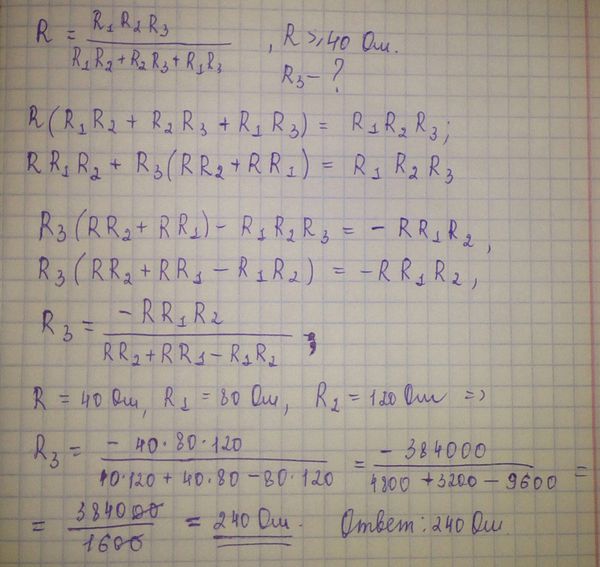 R = R₁R₂R₃ / R₁R₂+R₂R₃+R₁R₃ , R ⩾ 40 Ом.
R₃ – ?
R(R₁R₂ + R₂R₃ + R₁R₃) = R₁R₂R₃;
RR₁R₂ + R₃(RR₂+RR₁) = R₁R₂R₃
R₃(RR₂+RR₁) – R₁R₂R₃ = – RR₁R₂,
R₃(RR₂+RR₁ – R₁R₂) = –RR₁R₂,
R₃ = –RR₁R₂ / RR₂+RR₁–R₁R₂ ;
R = 40 Ом, R₁ = 80 Ом, R₂ = 120 Ом =>
R₃ = – 40·80·120 / 40·120 + 40·80 – 80·120 = – 384000 / 4800 + 3200 – 9600 =
= 384000 / 1600 = 240 Ом. Ответ: 240 Ом.